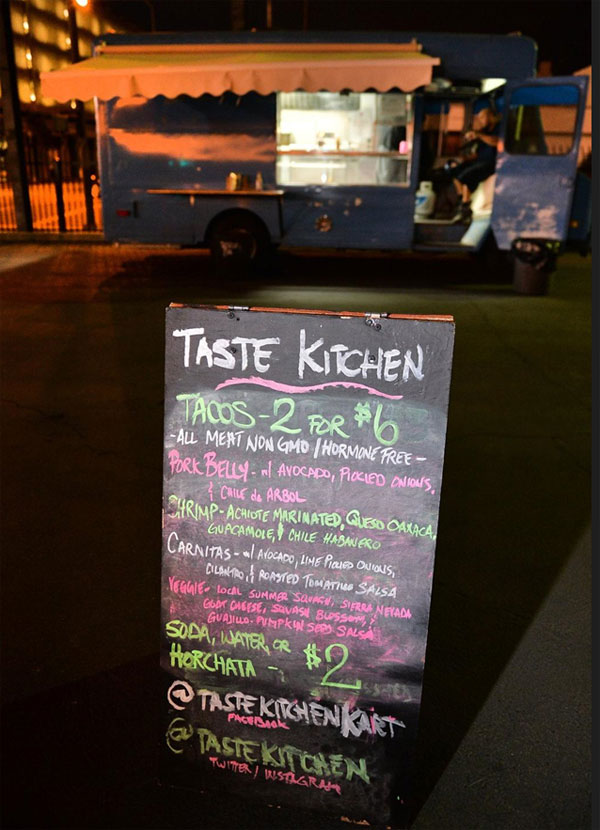 TASTE KITCHEN
TACOS - 2 FOR $6
-ALL MEAT NON GMO / HORMONE FREE -
PORK BELLY - w/ AVOCADO, PICKLED ONIONS,
& CHILE de ARBOL
SHRIMP - ACHIOTE MARINATED, QUESO OAXACA,
GUACAMOLE, & CHILE HABANERO
CARNITAS - w/ AVOCADO, LIME PICKLED ONIONS,
CILANTRO, & ROASTED TOMATILLO SALSA
VEGGIE - LOCAL SUMMER SQUASH, SIERRA NEVADA
GOAT CHEESE, SQUASH BLOSSOM, &
GUAJILLO - PUMPKIN SEED SALSA
SODA, WATER, OR
HORCHATA - $2
@TASTEKITCHENKART
FACEBOOK
@TASTEKITCHEN
TWITTER / INSTAGRAM